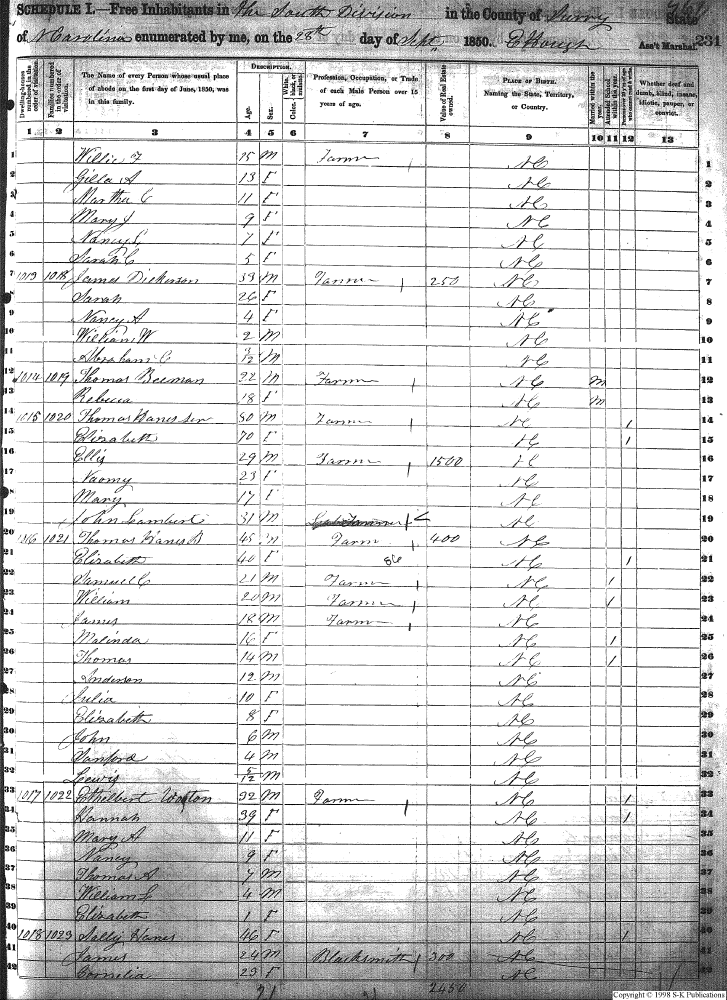 SCHEDULE I.—Free Inhabitants in the South Division in the County of Surry State
of N Carolina enumerated by me, on the 28th day of Sept 1850. Ass't Marshal. 231
Dwelling-houses numbered in the order of visitation.
Families numbered in the order of visitation.
The Name of every Person whose usual place of abode on the first day of June, 1850, was in this family.
DESCRIPTION.
Age.
Sex.
Color, White, black, or mulatto.
Profession, Occupation, or Trade of each Male Person over 15 years of age.
Value of Real Estate owned.
PLACE OF BIRTH. Naming the State, Territory, or Country.
Married within the year.
Attended School within the year.
Persons over 20 y'rs of age who cannot read & write.
Whether deaf and dumb, blind, insane, idiotic, pauper, or convict.
1 2 3 4 5 6 7 8 9 10 11 12 13
1 Willie F 15 M Farmer NC 1
2 Gilla A 13 F NC 2
3 Martha C 11 F NC 3
4 Mary J 9 F NC 4
5 Nancy C 7 F NC 5
6 Sarah C 5 F NC 6
7 1013 1018 James Dickerson 39 M Farmer 250 NC 7
8 Sarah 26 F NC 8
9 Nancy A 4 F NC 9
10 William W 2 M NC 10
11 Abraham C /12 M NC 11
12 1014 1019 Thomas Beeman 22 M Farmer NC M 12
13 Rebecca 18 F NC M 13
14 1015 1020 Thomas Hanes Sen 80 M Farmer NC 1 14
15 Elizabeth 70 F NC 1 15
16 Ellis 29 M Farmer 1500 NC 16
17 Naomy 23 F NC 17
18 Mary 17 F NC 18
19 John Lambert 31 M NC 19
20 1016 1021 Thomas Hanes B 45 M Farm 400 NC 20
21 Elizabeth 40 F 86 NC 1 21
22 Samuel C 21 M Farmer NC 1 22
23 William 20 M Farmer NC 1 23
24 James 18 M Farmer NC 24
25 Malinda 16 F NC 1 25
26 Thomas 14 M NC 1 26
27 Anderson 12 M NC 27
28 Julia 10 F NC 28
29 Elizabeth 8 F NC 29
30 John 6 M NC 30
31 Sanford 4 M NC 31
32 Lewis 5/12 M NC 32
33 1017 1022 Ethelbert Wooton 32 M Farmer NC 1 33
34 Hannah 39 F NC 1 34
35 Mary A 11 F NC 35
36 Nancy 9 F NC 36
37 Thomas A 7 M NC 37
38 William L 4 M NC 38
39 Elizabeth 1 F NC 39
40 1018 1023 Sally Hanes 46 F NC 1 40
41 James 24 M Blacksmith 300 NC 41
42 Cornelia 23 F NC 42
2450
Copyright © 1998 S-K Publications